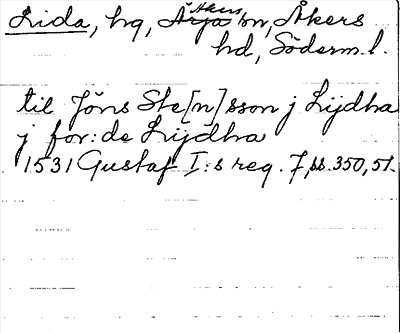 Lida, hg, Åkers sn, Åkers
hd, Söderm. l.
til Jöns Ste[n]sson j Lijdha
j for:de Lijdha
1531 Gustaf I:s reg. 7, ss. 350, 51.